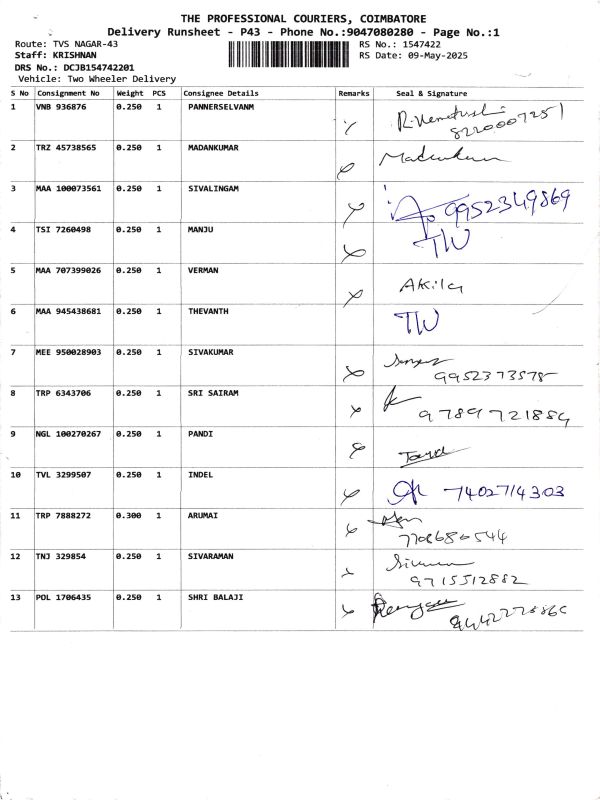 THE PROFESSIONAL COURIERS, COIMBATORE
Delivery Runsheet - P43 - Phone No.:9047080280 - Page No.:1
Route: TVS NAGAR-43 RS No.: 1547422
Staff: KRISHNAN RS Date: 09-May-2025
DRS No.: DCJB154742201
Vehicle: Two Wheeler Delivery
S No Consignment No Weight PCS Consignee Details Remarks Seal & Signature
1 VNB 936876 0.250 1 PANNERSELVANM
8220007251
2 TRZ 45738565 0.250 1 MADANKUMAR Madankumar
3 MAA 100073561 0.250 1 SIVALINGAM 9952349869
4 TSI 7260498 0.250 1 MANJU
5 MAA 707399026 0.250 1 VERMAN Akila
6 MAA 945438681 0.250 1 THEVANTH
7 MEE 950028903 0.250 1 SIVAKUMAR
9952373578
8 TRP 6343706 0.250 1 SRI SAIRAM
9789721884
9 NGL 100270267 0.250 1 PANDI
10 TVL 3299507 0.250 1 INDEL 7402714303
11 TRP 7888272 0.300 1 ARUMAI
7708680544
12 TNJ 329854 0.250 1 SIVARAMAN
9715512882
13 POL 1706435 0.250 1 SHRI BALAJI